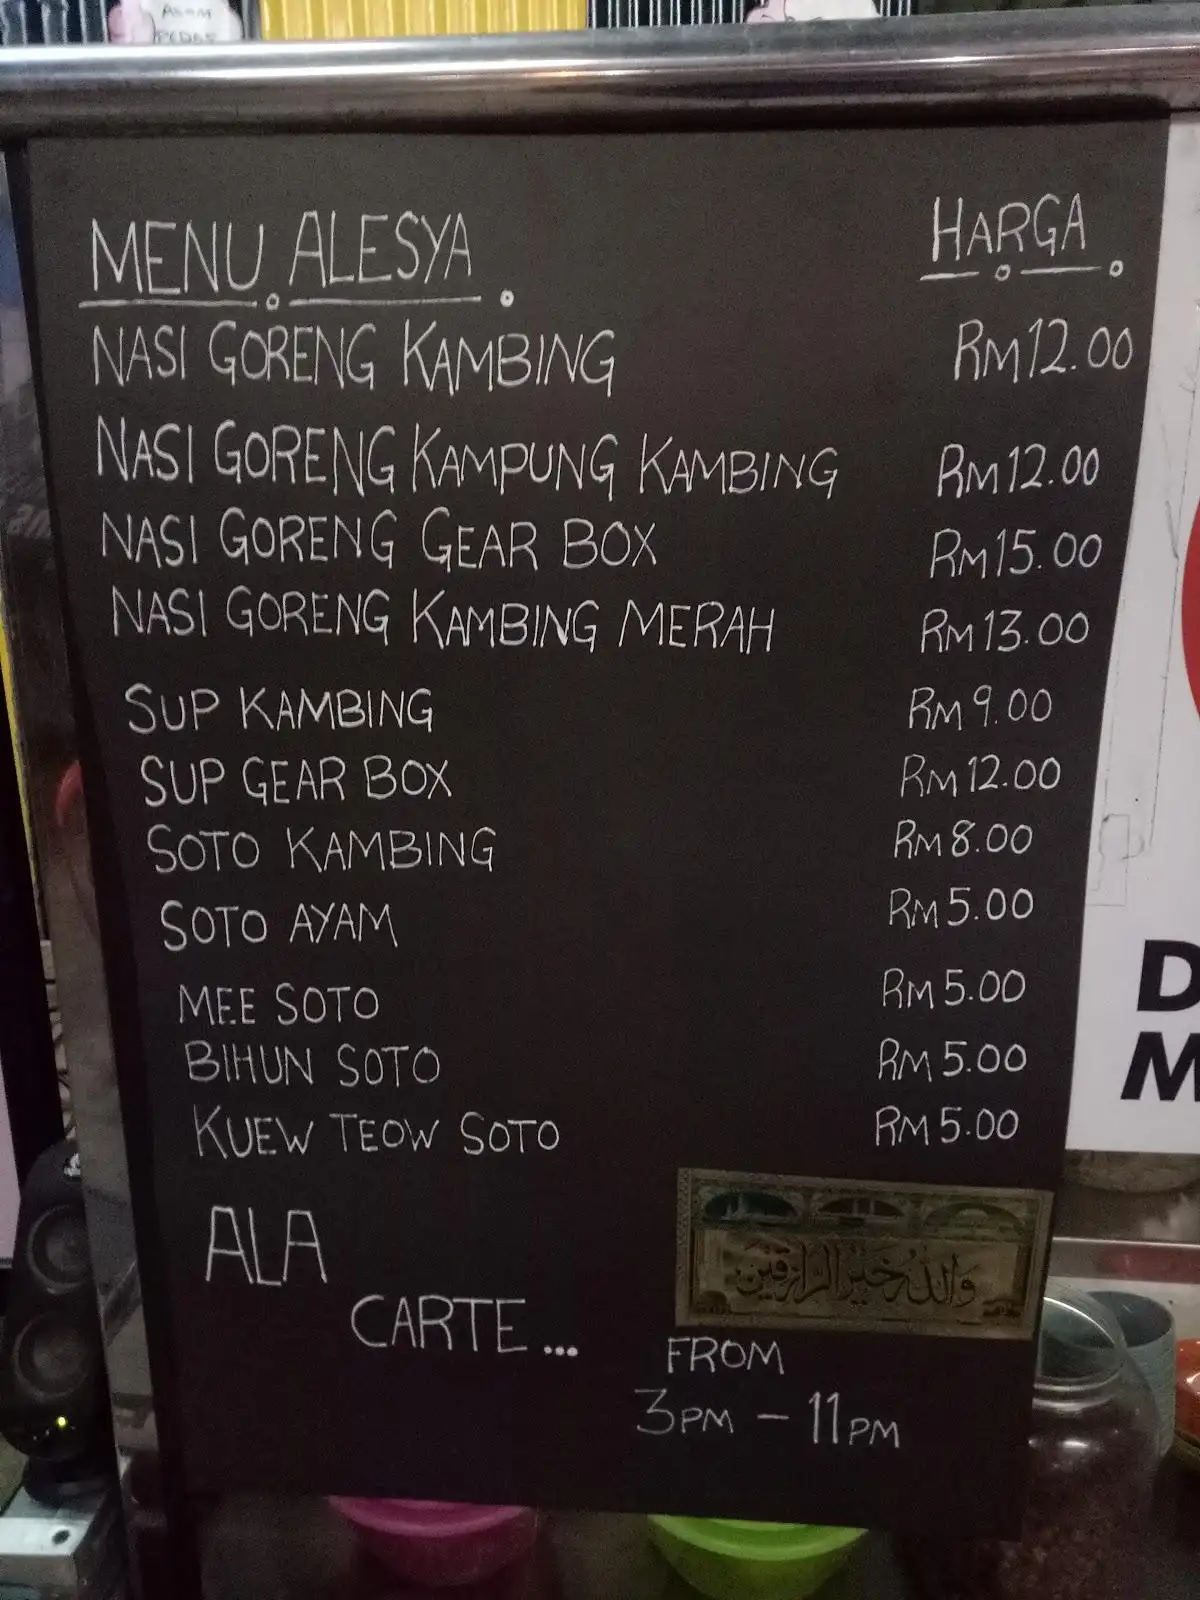 ASAM
PEDAS
MENU ALESYA
HARGA
NASI GORENG KAMBING RM12.00
NASI GORENG KAMPUNG KAMBING RM12.00
NASI GORENG GEAR BOX RM15.00
NASI GORENG KAMBING MERAH RM13.00
SUP KAMBING RM9.00
SUP GEAR BOX RM12.00
SOTO KAMBING RM8.00
SOTO AYAM RM5.00
MEE SOTO RM5.00
BIHUN SOTO RM5.00
KUEW TEOW SOTO RM5.00
ALA
CARTE...
والله خير الرازقين
FROM
3PM - 11PM
D
M